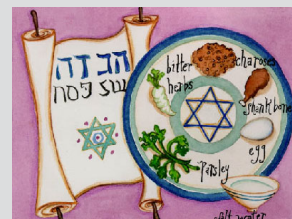 הגדה
של פסח
bitter
herbs
charoses
shank bone
egg
Parsley
salt water